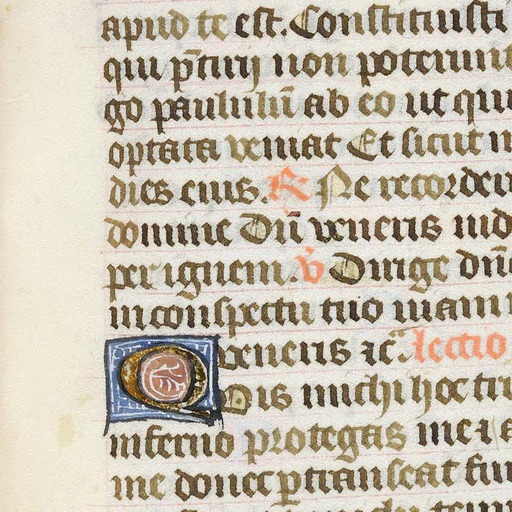 apud te est. Constituisti
qui p̄tiriī non poterunt
go paululū ab eo ut qui
optata veniat Et sicut m
dies eius. R̷ Ne recorder
domine Dū veneris iud
per ignem. v̄ Dirige dn̄e
in conspectu tuo uiam
veneris ꝛc̄. lectio
Quis michi hoc tri
inferno protegas me ꞇ a
me donec ꝑtranseat fur